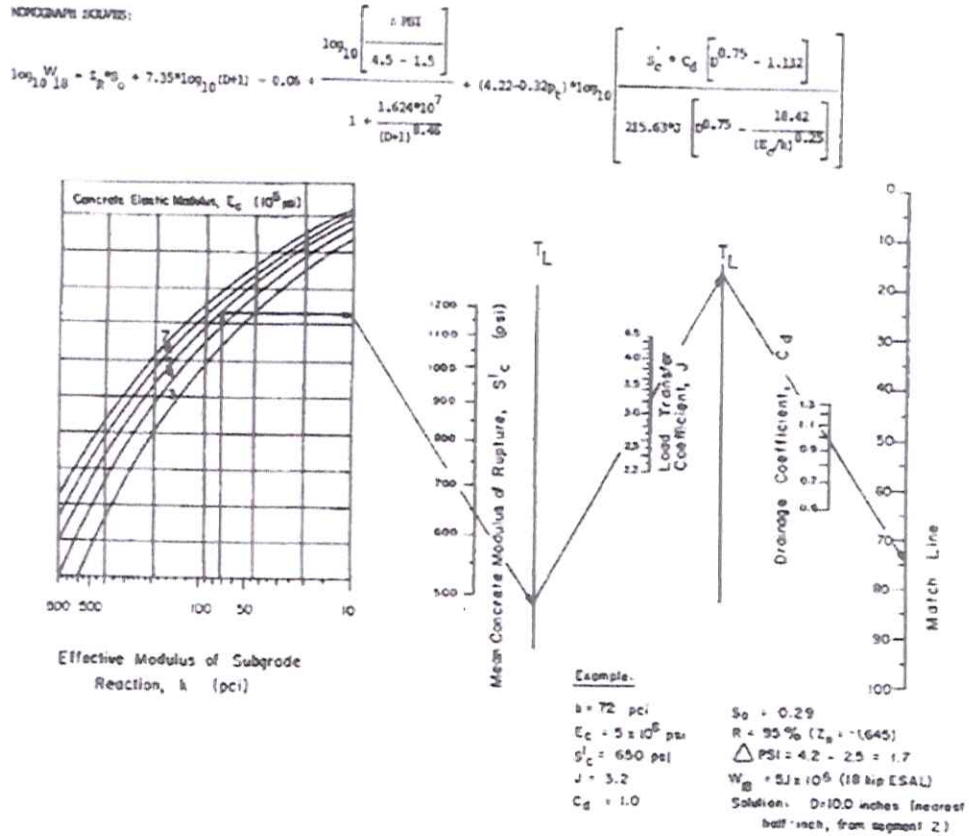 NOMOGRAPH SOLVES:
log₁₀W₁₈ = Z_R*S_o + 7.35*log₁₀(D+1) - 0.06 + log₁₀[Δ PSI / 4.5 - 1.5] / 1 + 1.624*10⁷ / (D+1)^8.46 + (4.22-0.32p_t)*log₁₀[S'_c * C_d [D^0.75 - 1.132] / 215.63*J [D^0.75 - 18.42 / (E_c/k)^0.25]]
Concrete Elastic Modulus, E_c (10⁶ psi)
7
500
100
50
10
Effective Modulus of Subgrade
Reaction, k (pci)
Mean Concrete Modulus of Rupture, S'c (psi)
1200
1100
1000
900
800
700
600
500
T_L
Load Transfer
Coefficient, J
4.5
4.0
3.5
3.0
2.5
2.2
T_L
Drainage Coefficient, C_d
1.3
1.1
0.9
0.7
0.6
0
10
20
30
40
50
60
70
80
90
100
Match Line
Example:
k = 72 pci
E_c = 5 x 10⁶ psi
S'_c = 650 psi
J = 3.2
C_d = 1.0
S_o = 0.29
R = 95 % (Z_R = -1.645)
Δ PSI = 4.2 - 2.5 = 1.7
W₁₈ = 5.1 x 10⁶ (18 kip ESAL)
Solution: D=10.0 inches (nearest
half-inch, from segment 2)